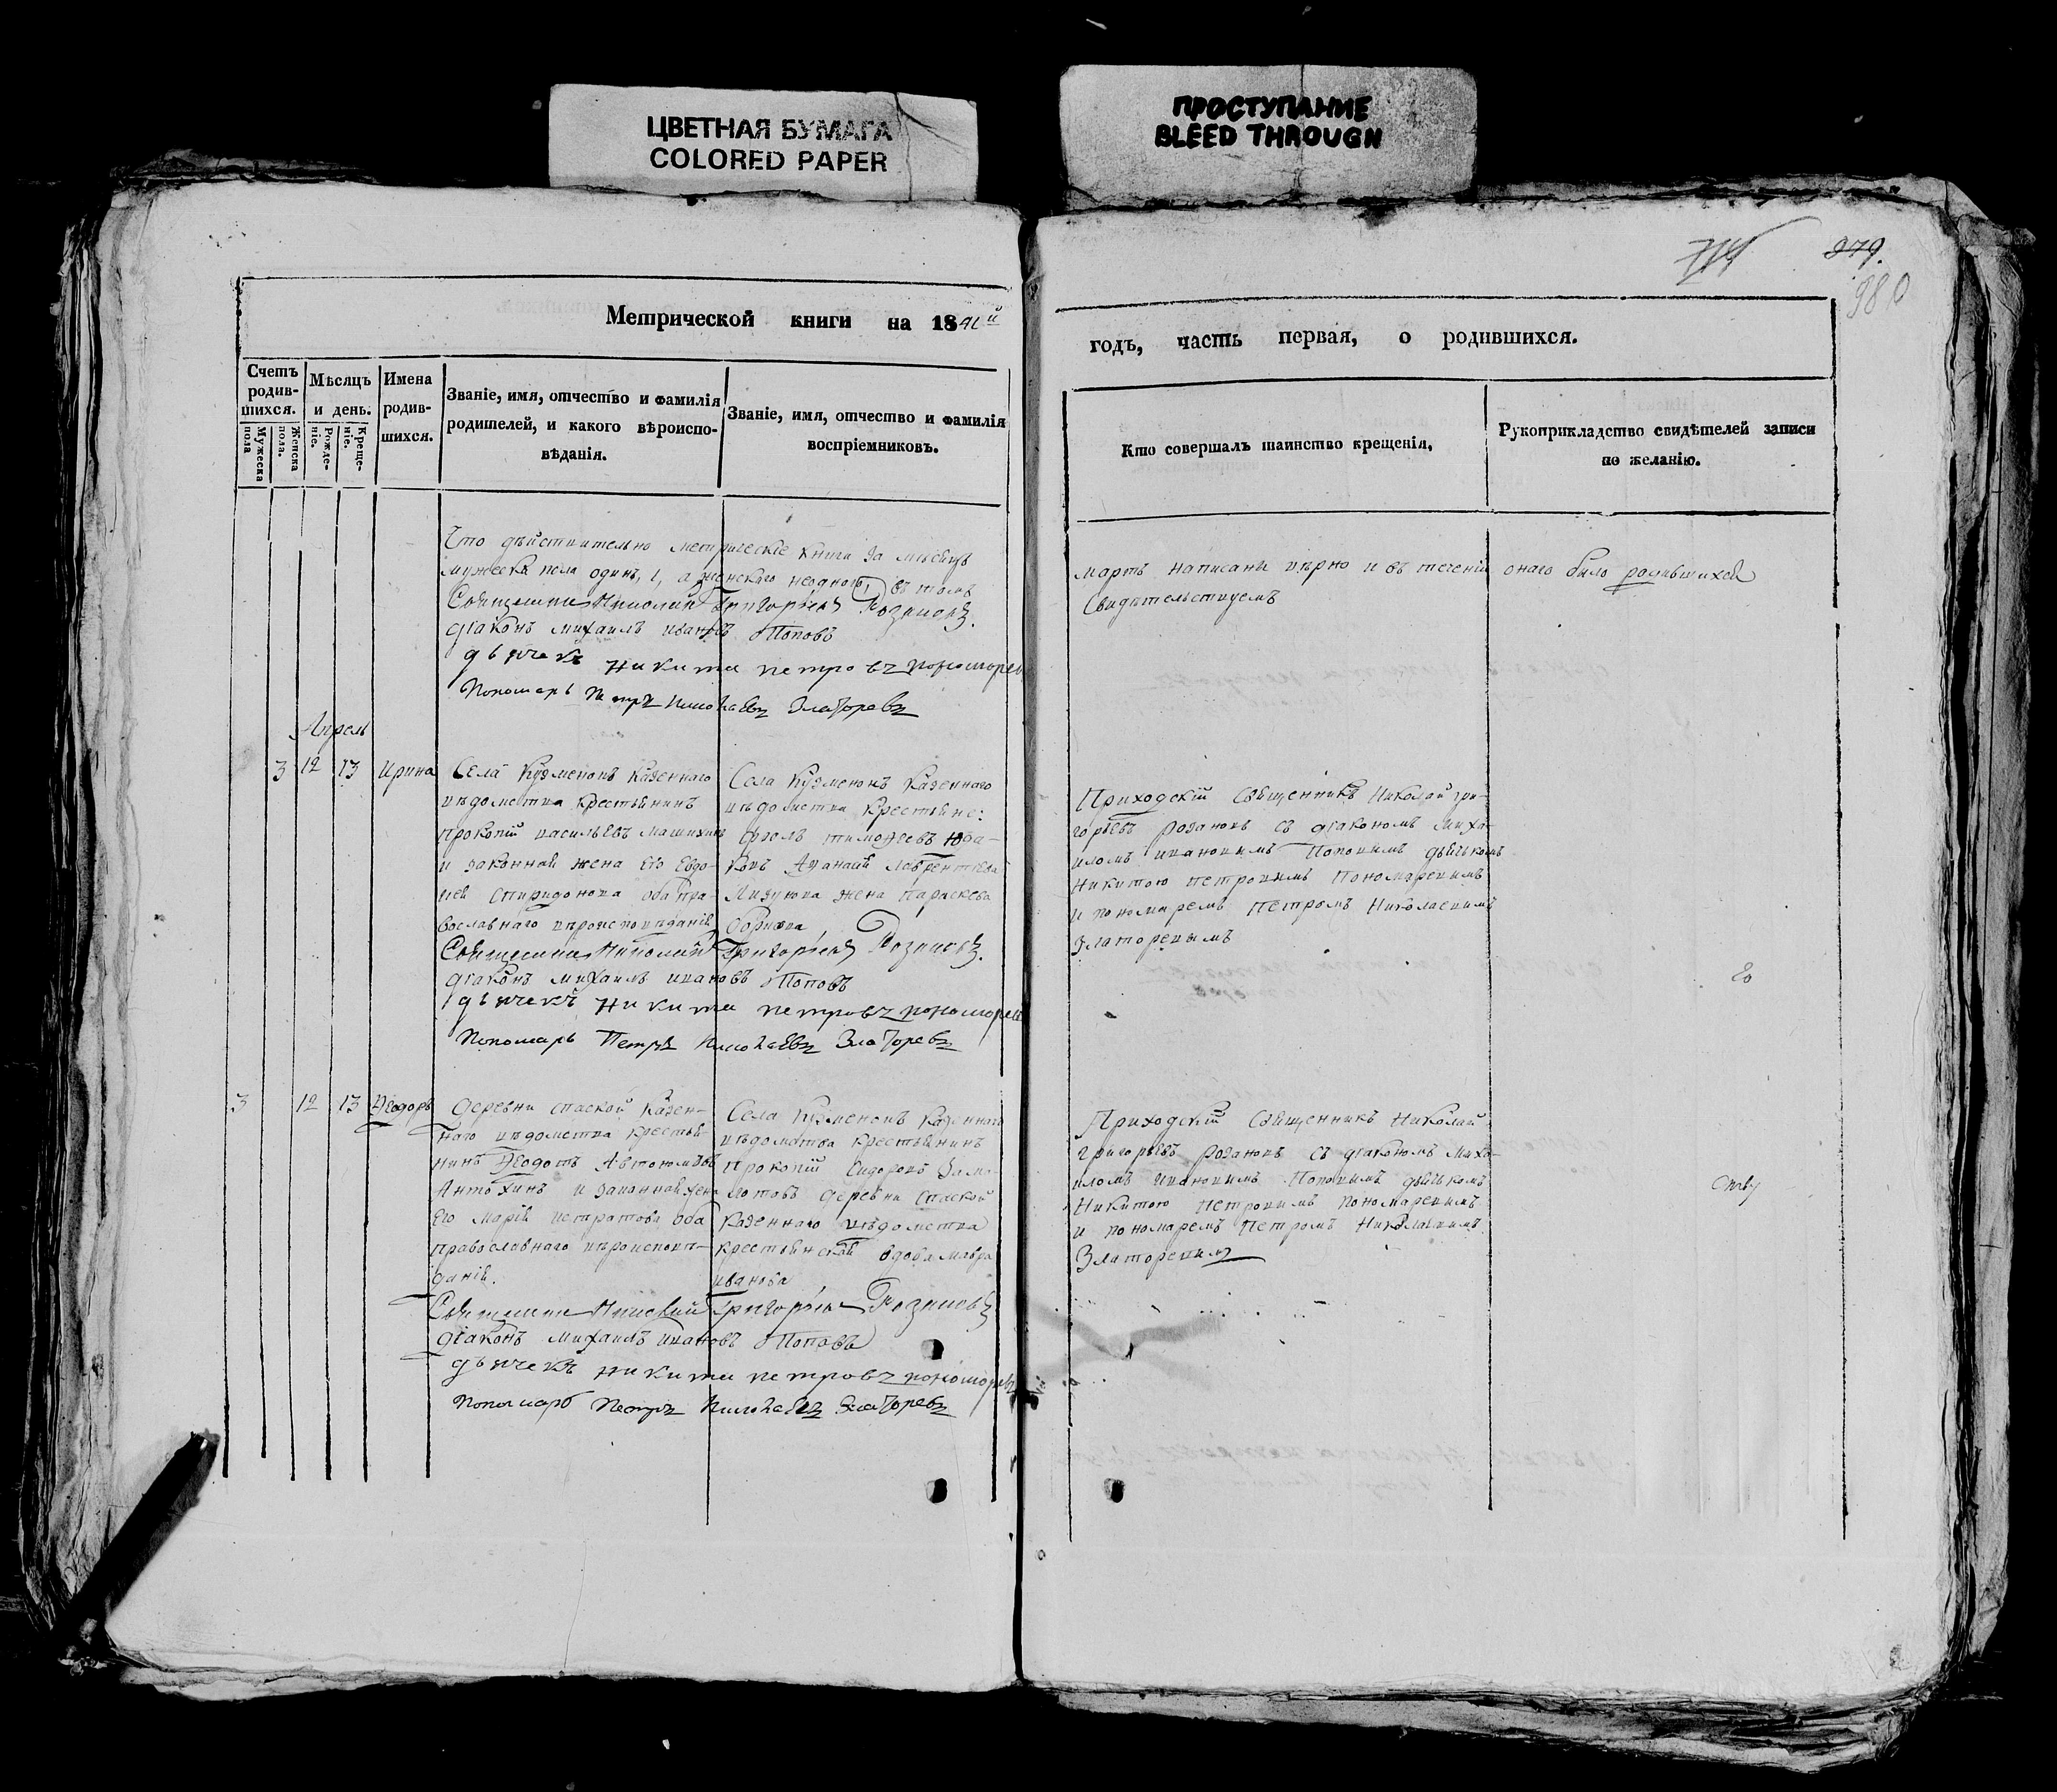 ЦВЕТНАЯ БУМАГА
COLORED PAPER
ПРОСТУПАНИЕ
BLEED THROUGH
279.
980
Метрической книги на 18
годъ, часть первая, о родившихся.
Счетъ родив-шихся.
Мужеска пола
Женска пола.
Мѣсяцъ и день.
Рожде-ніе.
Креще-ніе.
Имена родив-шихся.
Званіе, имя, отчество и фамилія родителей, и какого вѣроиспо-вѣданія.
Званіе, имя, отчество и фамилія воспріемниковъ.
Кто совершалъ таинство крещенія,
Рукоприкладство свидѣтелей записи по желанію.
Что дѣйствительно метрическіе книги за мѣсяцъ
мартъ написаны вѣрно и въ теченіи онаго было родившихся
мужеска пола одинъ, 1, а женскаго неодного, въ томъ
Свидѣтельствуемъ
Священникъ Николай Григорьевъ Розановъ.
діаконъ михаилъ ивановъ Поповъ
дьячекъ никита петровъ пономорев
Пономарь Петръ Николаевъ Златоревъ
Апрель
3 12 13 Ирина
Села Кузменокъ Казеннаго
вѣдомства крестьянинъ
прокопій васильевъ машихинъ
и законная жена Его Евдо-
кея спиридонова оба пра-
вославнаго вѣроисповѣданія
Села Кузменокъ Казеннаго
вѣдомства Крестьяне:
тимофеевъ
Лаврентьева
жена Параскева
Приходскій Священникъ Николай гри-
горьевъ розановъ съ діакономъ миха-
иломъ ивановымъ Поповымъ дьячькомъ
Никитою петровымъ Пономаревымъ
и пономаремъ Петромъ Николаевымъ
Златоревымъ
Священникъ Николай Григорьевъ Розановъ.
діаконъ михаилъ ивановъ Поповъ
дьячекъ никита петровъ пономорев
Пономарь Петръ Николаевъ Златоревъ
3 12 13 Ѳеодоръ
деревни спаской Казен-
наго вѣдомства крестья-
нинъ Ѳеодотъ Автономовъ
Антохинъ и законная жена
Его марія истратова оба
православнаго вѣроисповѣ-
данія.
Села Кузменокъ Казеннаго
вѣдомства крестьянинъ
Прокопій Сидоровъ Замо-
лотовъ деревни спаской
Казеннаго вѣдомства
крестьянская вдова мавра
иванова
Приходскій Священникъ Николай
григорьевъ розановъ съ діакономъ миха-
иломъ ивановымъ Поповымъ дьячькомъ
Никитою петровымъ Пономаревымъ
и пономаремъ Петромъ Николаевымъ
Златоревымъ
Священникъ Николай Григорьевъ Розановъ
діаконъ михаилъ ивановъ Поповъ
дьячекъ никита петровъ пономоревъ
Пономарь Петръ Николаевъ Златоревъ